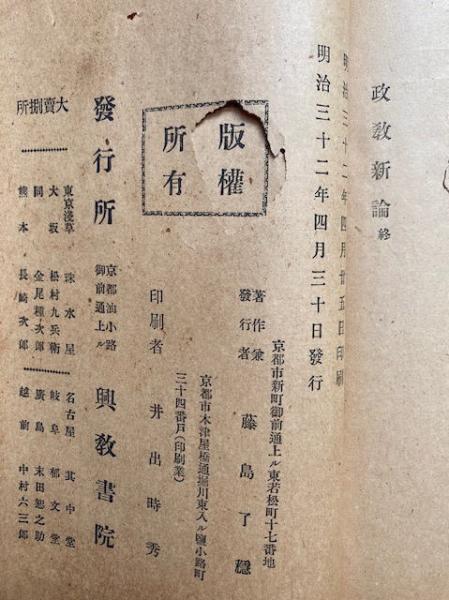 政教新論 終
明治三十二年四月廿五日印刷
明治三十二年四月三十日發行
版權
所有
京都市新町御前通上ル東若松町十七番地
著作兼
發行者 藤島了穩
京都市木津屋橋通堀川東入ル鹽小路町
三十四番戸(印刷業)
印刷者 井出時秀
發行所
京都油小路
御前通上ル
興教書院
大賣捌所
東京淺草 珠水屋
大坂 松村九兵衛
同 金尾種次郎
熊本 長崎次郎
名古屋 其中堂
岐阜 郁文堂
廣島 末田惣之助
越前 中村六三郎